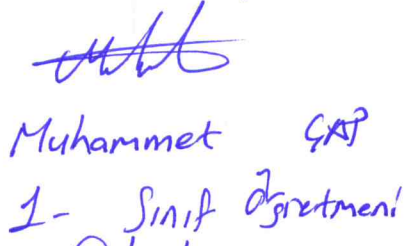 Muhammet ÇAP
1- Sınıf Öğretmeni